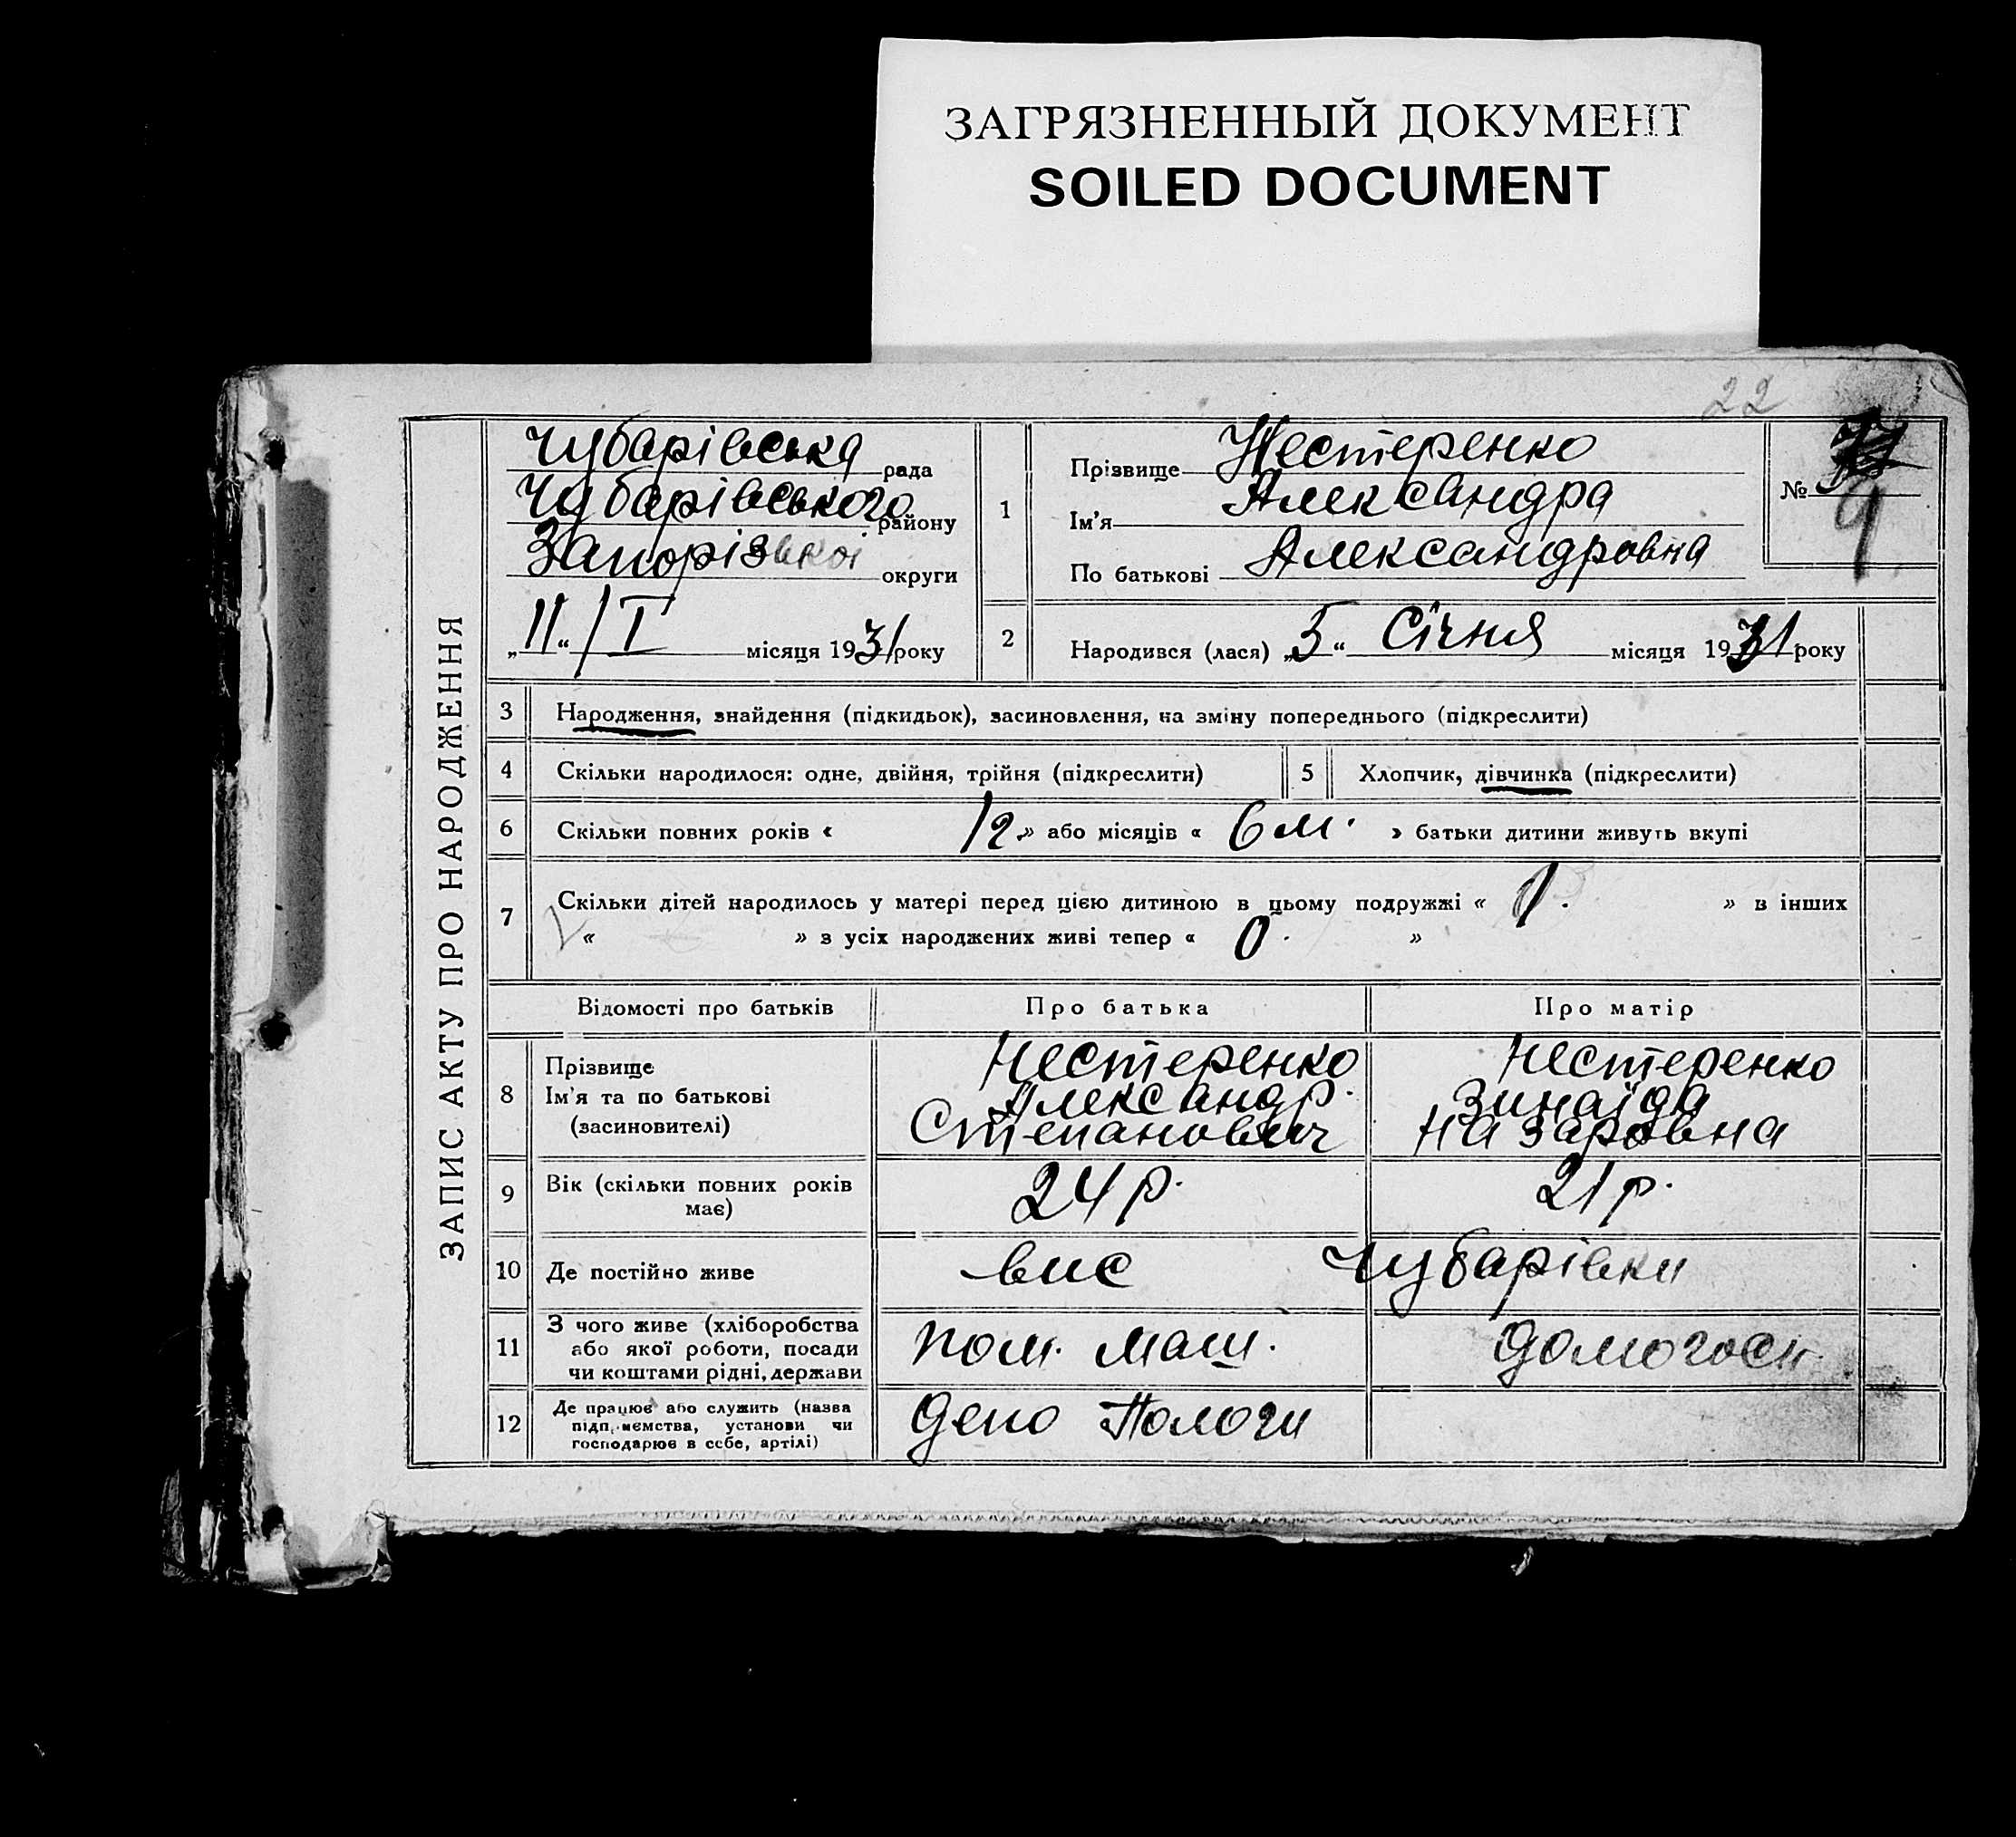 ЗАГРЯЗНЕННЫЙ ДОКУМЕНТ
SOILED DOCUMENT
22
ЗАПИС АКТУ ПРО НАРОДЖЕННЯ
Чубарівська рада
Чубарівського району
Запорізької округи
„11“ / I місяця 1931 року
1
Прізвище Нестеренко
Ім'я Александра
По батькові Александровна
№ 9
2
Народився (лася) „5“ Січня місяця 1931 року
3 Народження, знайдення (підкидьок), засиновлення, на зміну попереднього (підкреслити)
4 Скільки народилося: одне, двійня, трійня (підкреслити)
5 Хлопчик, дівчинка (підкреслити)
6 Скільки повних років « 12» або місяців « 6 м. » батьки дитини живуть вкупі
7 Скільки дітей народилось у матері перед цією дитиною в цьому подружжі « 1. » в інших
« » з усіх народжених живі тепер « 0. »
Відомості про батьків Про батька Про матір
8 Прізвище
Ім'я та по батькові
(засиновителі)
Нестеренко
Александр.
Степанович
Нестеренко
Зинаїда
Назаровна
9 Вік (скільки повних років
має)
24 р. 21 р.
10 Де постійно живе вис Чубарівки
11 З чого живе (хліборобства
або якої роботи, посади
чи коштами рідні, держави
пом. маш. домогосп.
12 Де працює або служить (назва
підприємства, установи чи
господарює в себе, артілі)
депо Пологи